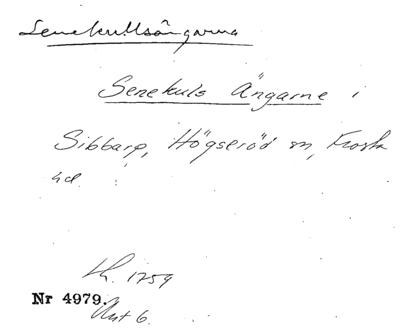 Senekullsängarna
Senekuls Ängarne i
Sibbarp, Högseröd sn, Frosta
hd.
Lh. 1759
Nr 4979.
Akt 6.